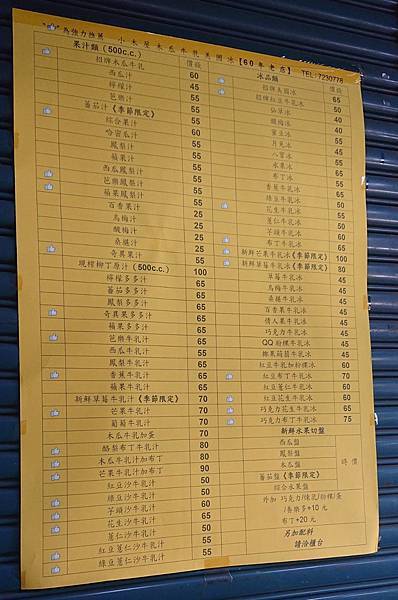 "👍"為強力推薦 小木屋木瓜牛乳美國冰【60年老店】 TEL:7230778
果汁類 (500c.c.) 價錢
招牌木瓜牛乳 60
西瓜汁 45
檸檬汁 55
芭樂汁 55
蕃茄汁《季節限定》 55
綜合果汁 55
哈密瓜汁 60
鳳梨汁 55
蘋果汁 55
西瓜鳳梨汁 55
芭樂鳳梨汁 55
蘋果鳳梨汁 55
百香果汁 55
烏梅汁 25
酸梅汁 25
桑椹汁 25
奇異果汁 65
現榨柳丁原汁 (500c.c.) 100
檸檬多多汁 65
蕃茄多多汁 65
鳳梨多多汁 65
奇異果多多汁 65
蘋果多多汁 65
芭樂牛乳汁 65
西瓜牛乳汁 55
鳳梨牛乳汁 65
香蕉牛乳汁 65
蘋果牛乳汁 65
新鮮草莓牛乳汁《季節限定》 70
芒果牛乳汁 70
葡萄牛乳汁 70
木瓜牛乳加蛋 70
酪梨布丁牛乳汁 80
木瓜牛乳汁加布丁 80
芒果牛乳汁加布丁 90
紅豆沙牛乳汁 50
綠豆沙牛乳汁 50
芋頭沙牛乳汁 60
花生沙牛乳汁 65
薏仁沙牛乳汁 50
紅豆薏仁沙牛乳汁 55
綠豆薏仁沙牛乳汁 55
冰品類 價錢
招牌美國冰 65
招牌紅豆牛乳冰 50
仙草冰 40
酸梅冰 40
蜜豆冰 45
月見冰 45
八寶冰 45
水果冰 65
布丁冰 65
香蕉牛乳冰 65
綠豆牛乳冰 50
花生牛乳冰 50
薏仁牛乳冰 50
芋頭牛乳冰 60
布丁牛乳冰 65
新鮮芒果牛乳冰《季節限定》 100
新鮮草莓牛乳冰《季節限定》 80
草莓牛乳冰 45
烏梅牛乳冰 45
桑椹牛乳冰 45
百香果牛乳冰 45
情人果牛乳冰 45
巧克力牛乳冰 45
QQ粉粿牛乳冰 45
椰果蒟蒻牛乳冰 45
紅豆牛乳冰加粉粿 60
紅豆布丁牛乳冰 70
紅豆薏仁牛乳冰 60
紅豆花生牛乳冰 60
巧克力花生牛乳冰 65
巧克力布丁牛乳冰 75
新鮮水果切盤
西瓜盤
鳳梨盤
木瓜盤
蕃茄盤《季節限定》
綜合水果盤
時價
外加 巧克力/煉乳/粉粿/蛋
/養樂多+10元
布丁+20元
另加配料
請洽櫃台